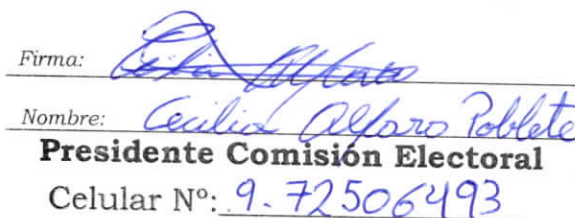 Firma: Cecilia Alfaro
Nombre: Cecilia Alfaro Poblete
Presidente Comisión Electoral
Celular Nº: 9.72506493